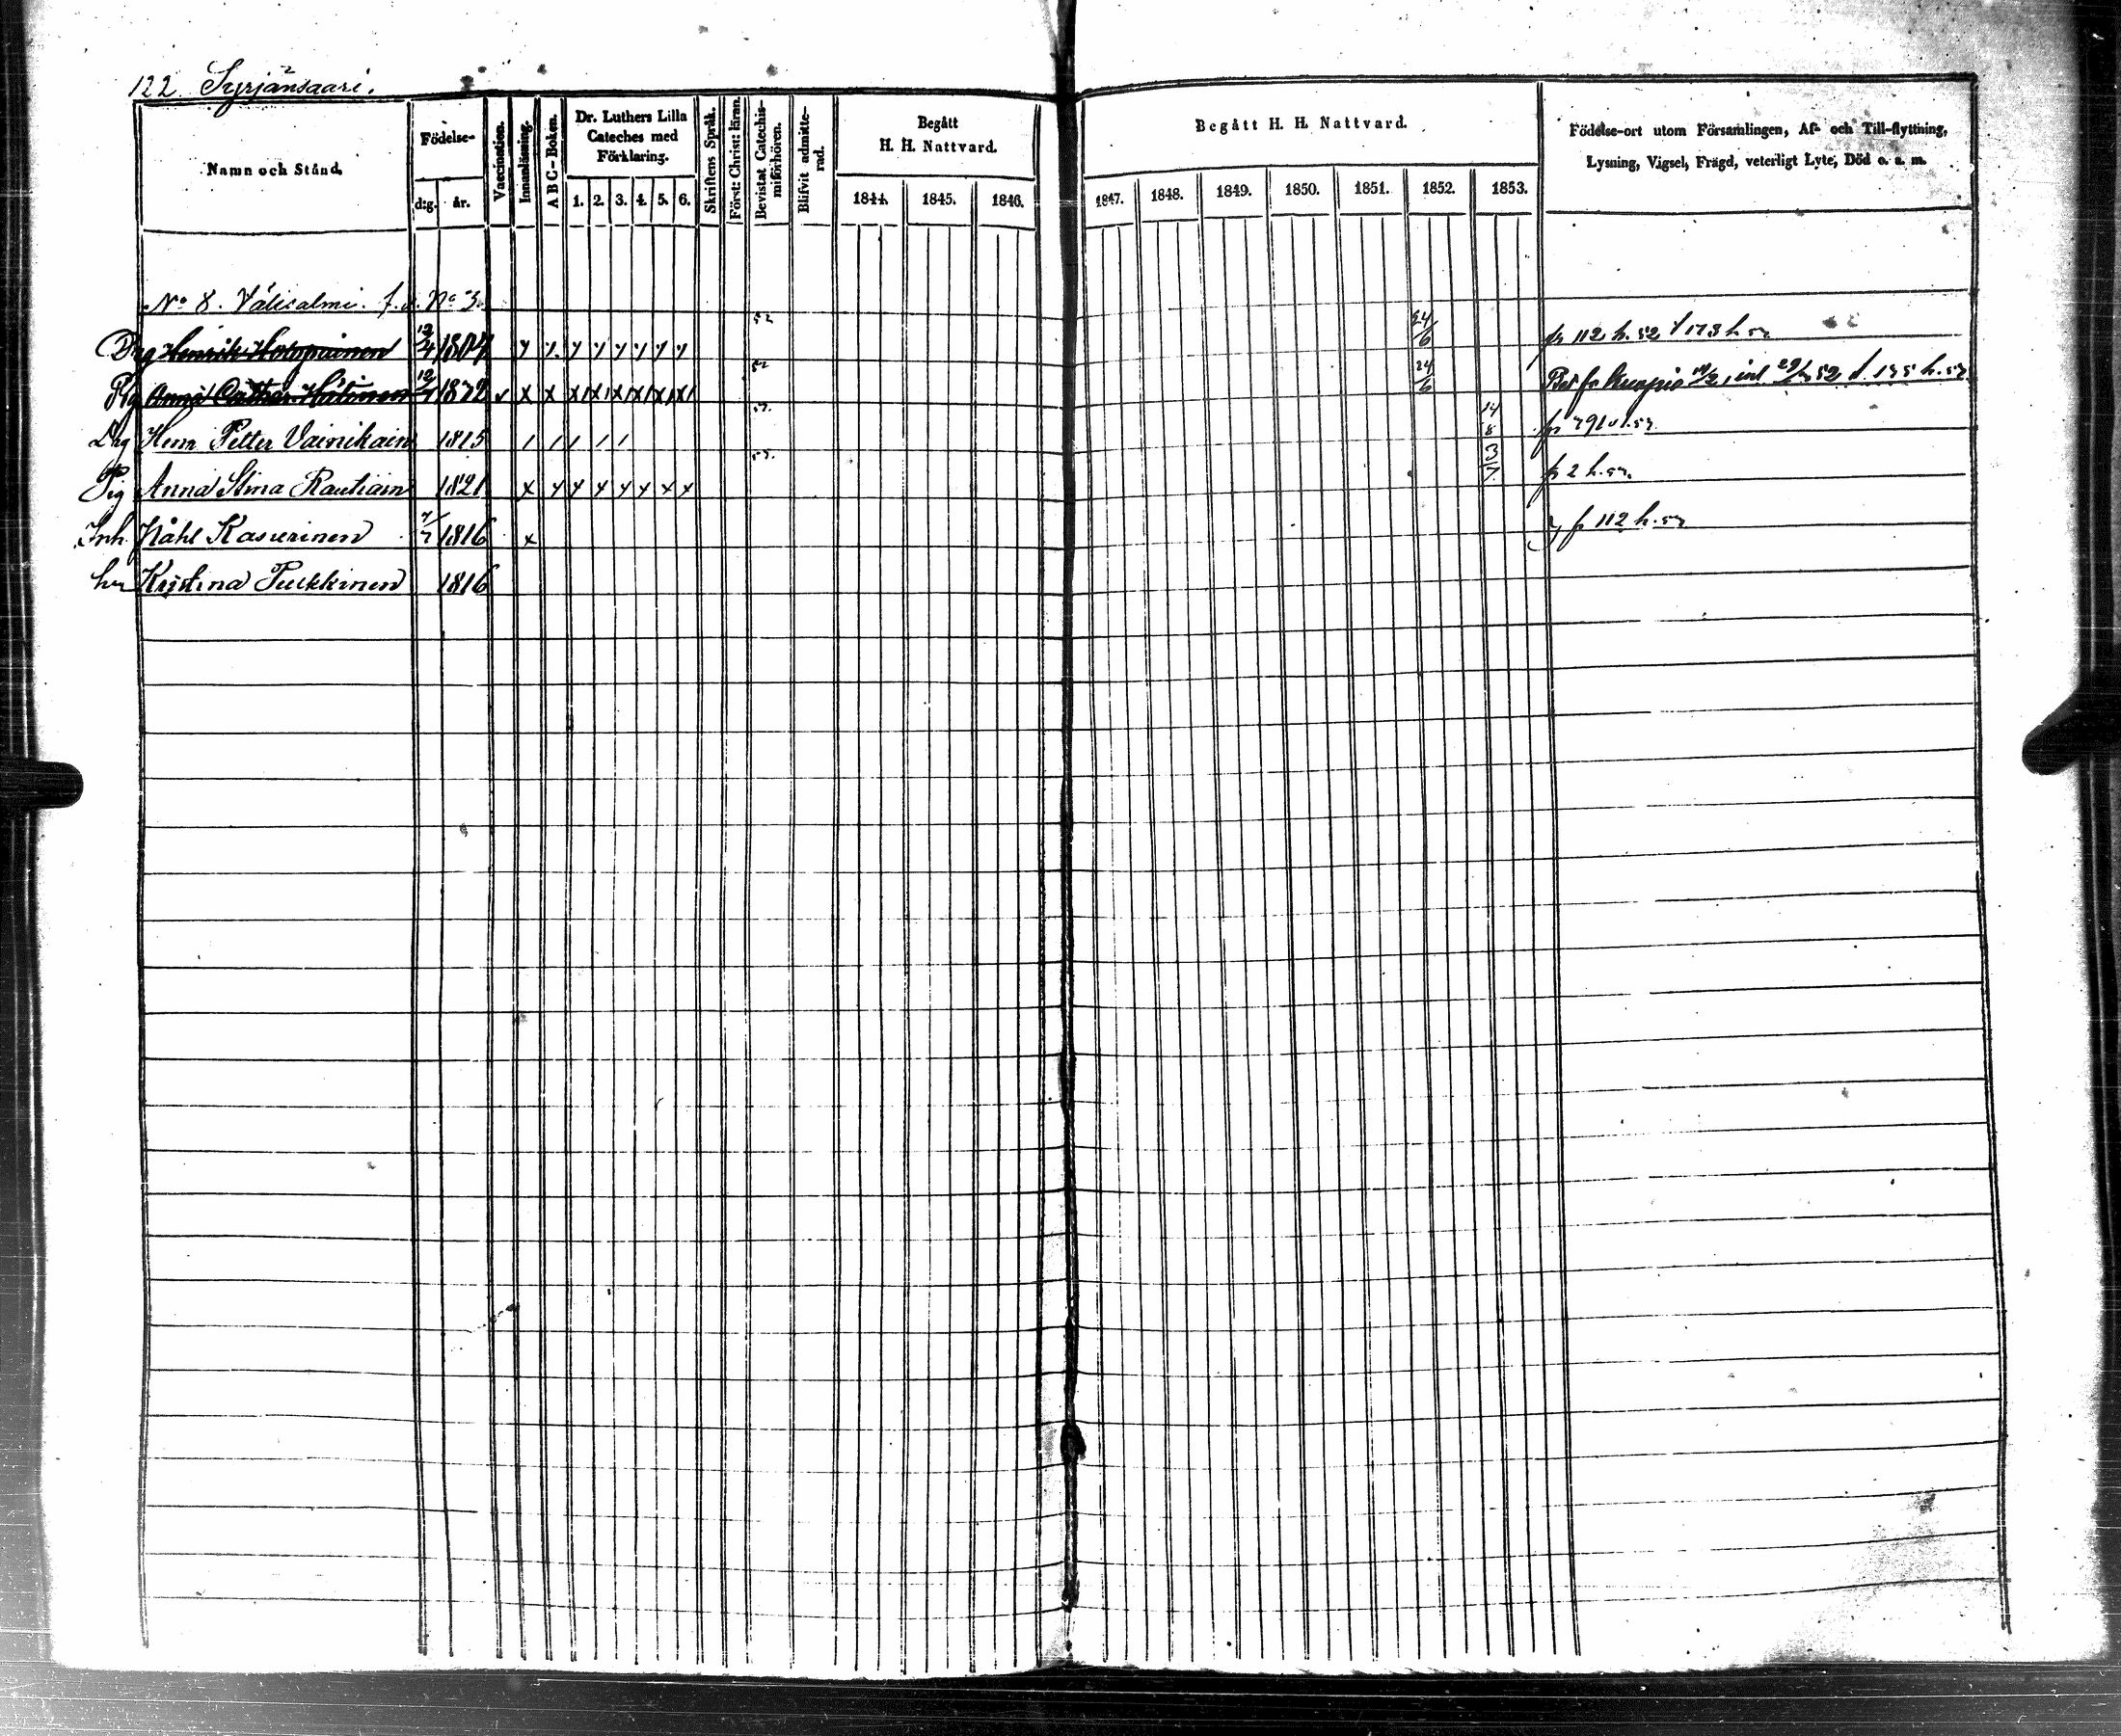 122. Syrjänsaari.
Namn och Stånd.
Födelse-
d:g. år.
Vaccination.
Innanläsning.
A B C-Boken.
Dr. Luthers Lilla Cateches med Förklaring.
1. 2. 3. 4. 5. 6.
Skriftens Språk.
Först: Christ: läran.
Bevistat Catechis-miförhören.
Blifvit admitte-rad.
Begått H. H. Nattvard.
1844. 1845. 1846.
Begått H. H. Nattvard.
1847. 1848. 1849. 1850. 1851. 1852. 1853.
Födelse-ort utom Församlingen, Af- och Till-flyttning,
Lysning, Vigsel, Frägd, veterligt Lyte, Död o. s. m.
No 8. Välisalmi. f.d. No 3.
Drg Henrik Holopainen 12/4 1804 52 24/6 fr 112 h. 52
Pig Anna Cathar. 12/7 52 24/6 Bet fr Kuopio
Drg Henr Petter Vainikain 1815 14/8
Pig Anna Stina Rautiain 1821 3/7 fr 2 h.
Inh. Påhl Kasurinen 7/7 1816 x fr 112 h.
hu Kristina Pulkkinen 1816